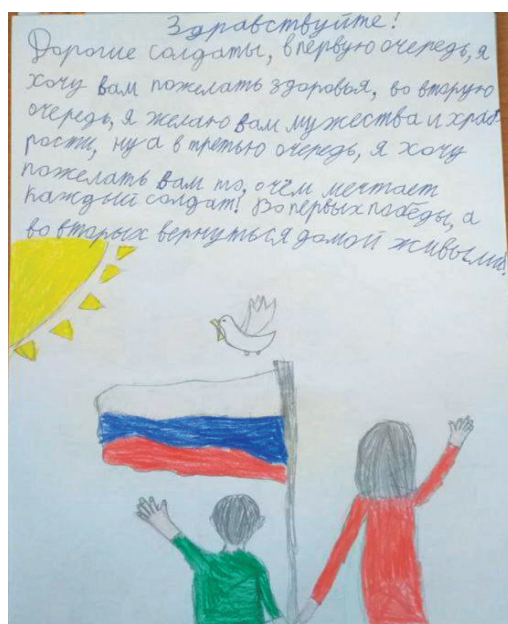 Здравствуйте!
Дорогие солдаты, в первую очередь, я
хочу вам пожелать здоровья, во вторую
очередь, я желаю вам мужества и храб
рости, ну а в третью очередь, я хочу
пожелать вам то, о чём мечтает
каждый солдат! Во первых победы, а
во вторых вернуться домой живыми.